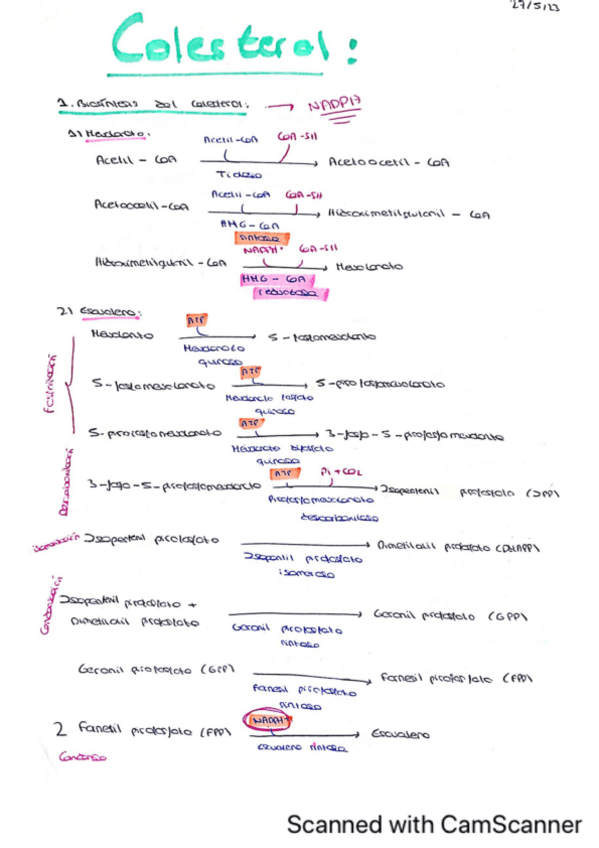 27/5/23
Colesterol:
1. Biosíntesis del Colesterol: → NADPH
1) Mevalonato:
Acetil-CoA CoA-SH
Acetil-CoA → Acetoacetil-CoA
Tiolasa
Acetil-CoA CoA-SH
Acetoacetil-CoA → Hidroximetilglutaril-CoA
HMG-CoA
sintasa
NADPH+ CoA-SH
Hidroximetilglutaril-CoA → Mevalonato
HMG-CoA
reductasa
2) Escualeno:
ATP
Mevalonato → 5-fosfomevalonato
Mevalonato
quinasa
Fosforilación
ATP
5-fosfomevalonato → 5-pirofosfomevalonato
Mevalonato fosfato
quinasa
ATP
5-pirofosfomevalonato → 3-fosfo-5-pirofosfomevalonato
Mevalonato difosfato
quinasa
Descarboxilación
ATP Pi + CO2
3-fosfo-5-pirofosfomevalonato → Isopentenil pirofosfato (IPP)
Pirofosfomevalonato
descarboxilasa
Isomerización Isopentenil pirofosfato → Dimetilalil pirofosfato (DMAPP)
Isopentenil pirofosfato
isomerasa
Condensación
Isopentenil pirofosfato +
Dimetilalil pirofosfato → Geranil pirofosfato (GPP)
Geranil pirofosfato
sintasa
Geranil pirofosfato (GPP) → Farnesil pirofosfato (FPP)
Farnesil pirofosfato
sintasa
NADPH+
2 Farnesil pirofosfato (FPP) → Escualeno
escualeno sintasa
Scanned with CamScanner